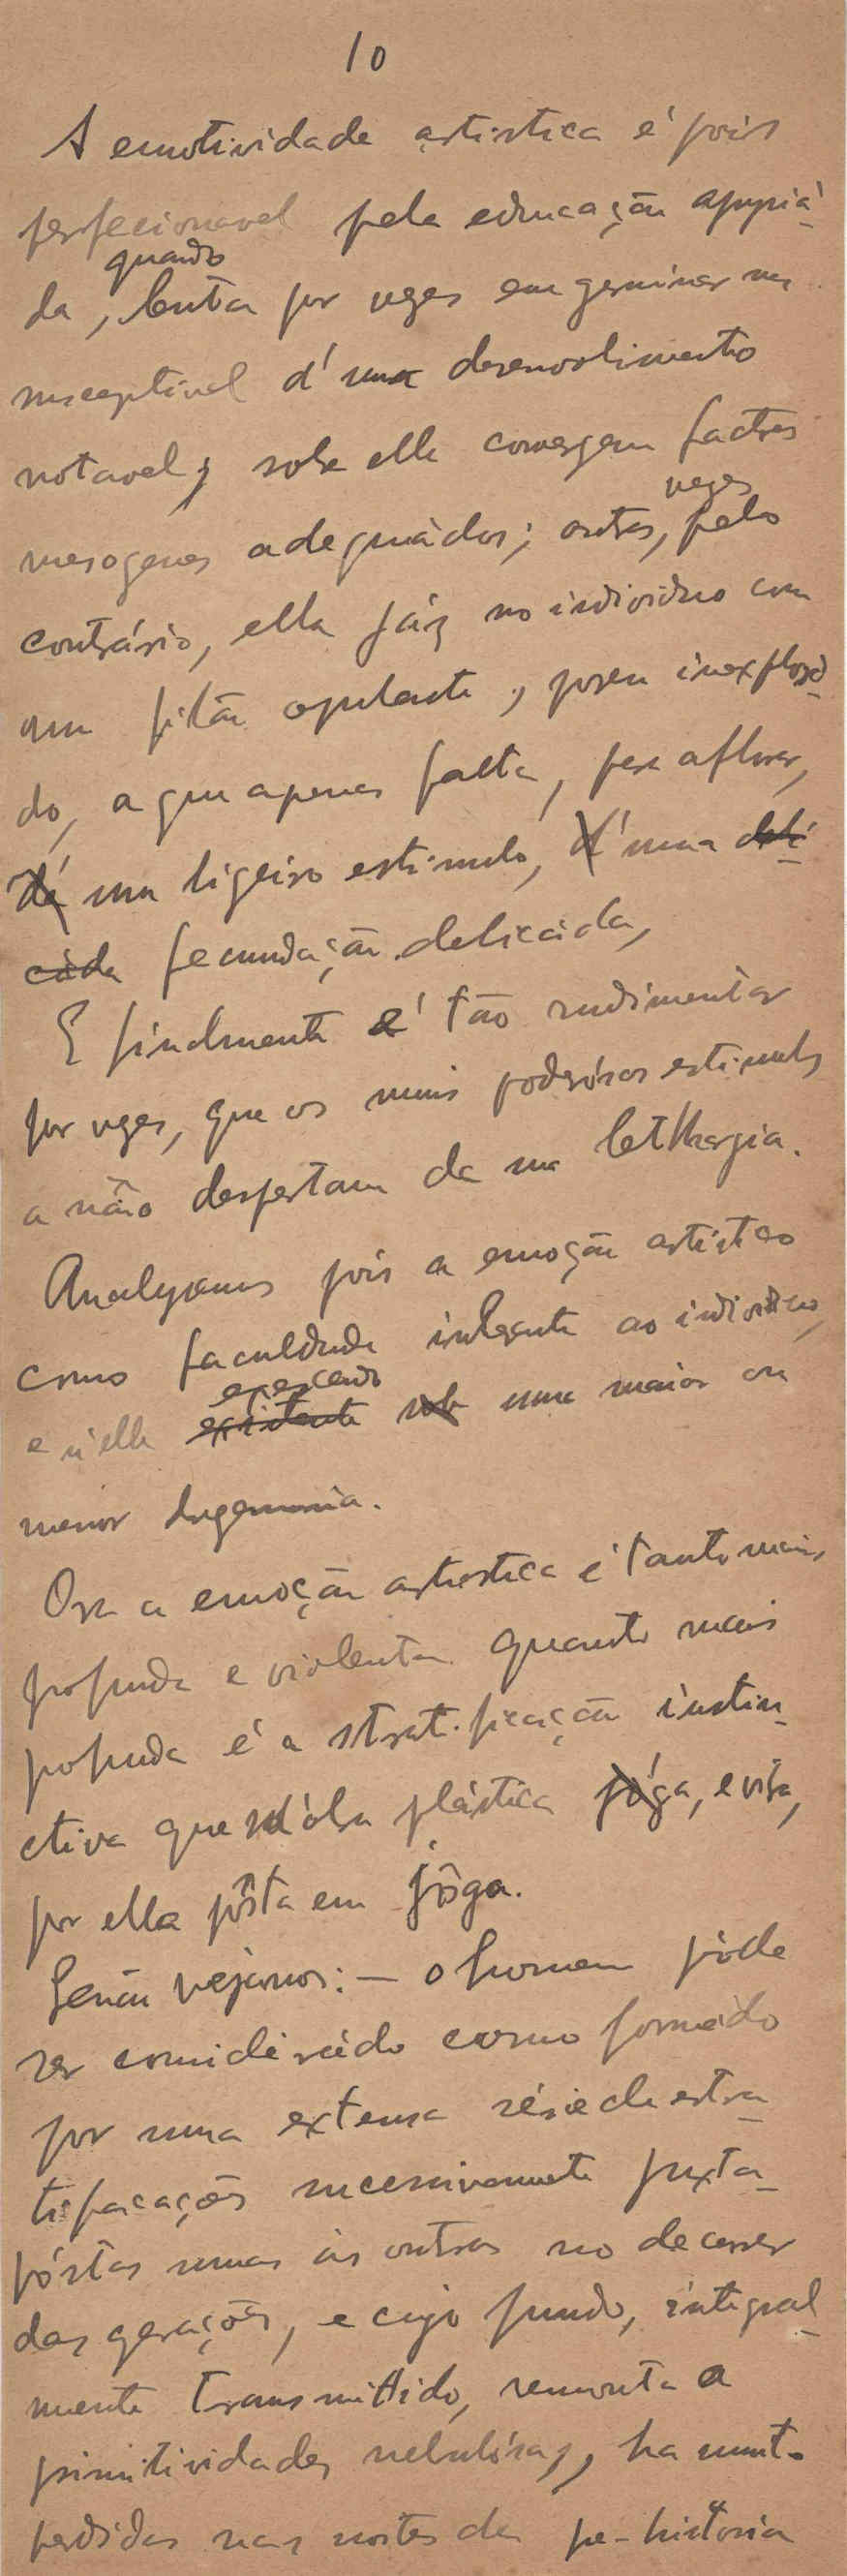 10
A emotividade artistica é pois
perfecionavel pela educação appriá-
quando
da, lenta por vezes em germinar mas
susceptivel d'um desenvolvimento
notavel, sobre ella convergem factores
mesogenos adequádos; outras, vezes pelo
contrário, ella jáz no individuo com
um filão opulento, porem inexplora-
do, a que apenas falta, pera aflorar,
dé um ligeiro estimulo, d'uma deli-
cáda fecundação delicáda,
E finalmente é tão rudimentar
por vezes, que os mais poderósos estimulos
a não despertam da sua lethargia.
Analysamos pois a emoção artistica
como faculdade inherente ao individuo,
exercendo
e n'elle existente sob uma maior ou
menor hegemonia.
Ora a emoção artistica é tanto mais
profunda e violenta quanto mais
profunda é a stratificação instin-
ctiva que n'óbra plástica jóga, e vibra,
por ella pôsta em jôga.
Senão vejamos: — o homem póde
ser consideràdo como formádo
por uma extensa série de estra-
tificações sucessivamente juxta-
póstas umas ás outras no decorrer
das gerações, e cujo fundo, integral-
mente transmittido, remonta a
primitividades nebulósas, ha muito
perdidas nas noites da pre-historia